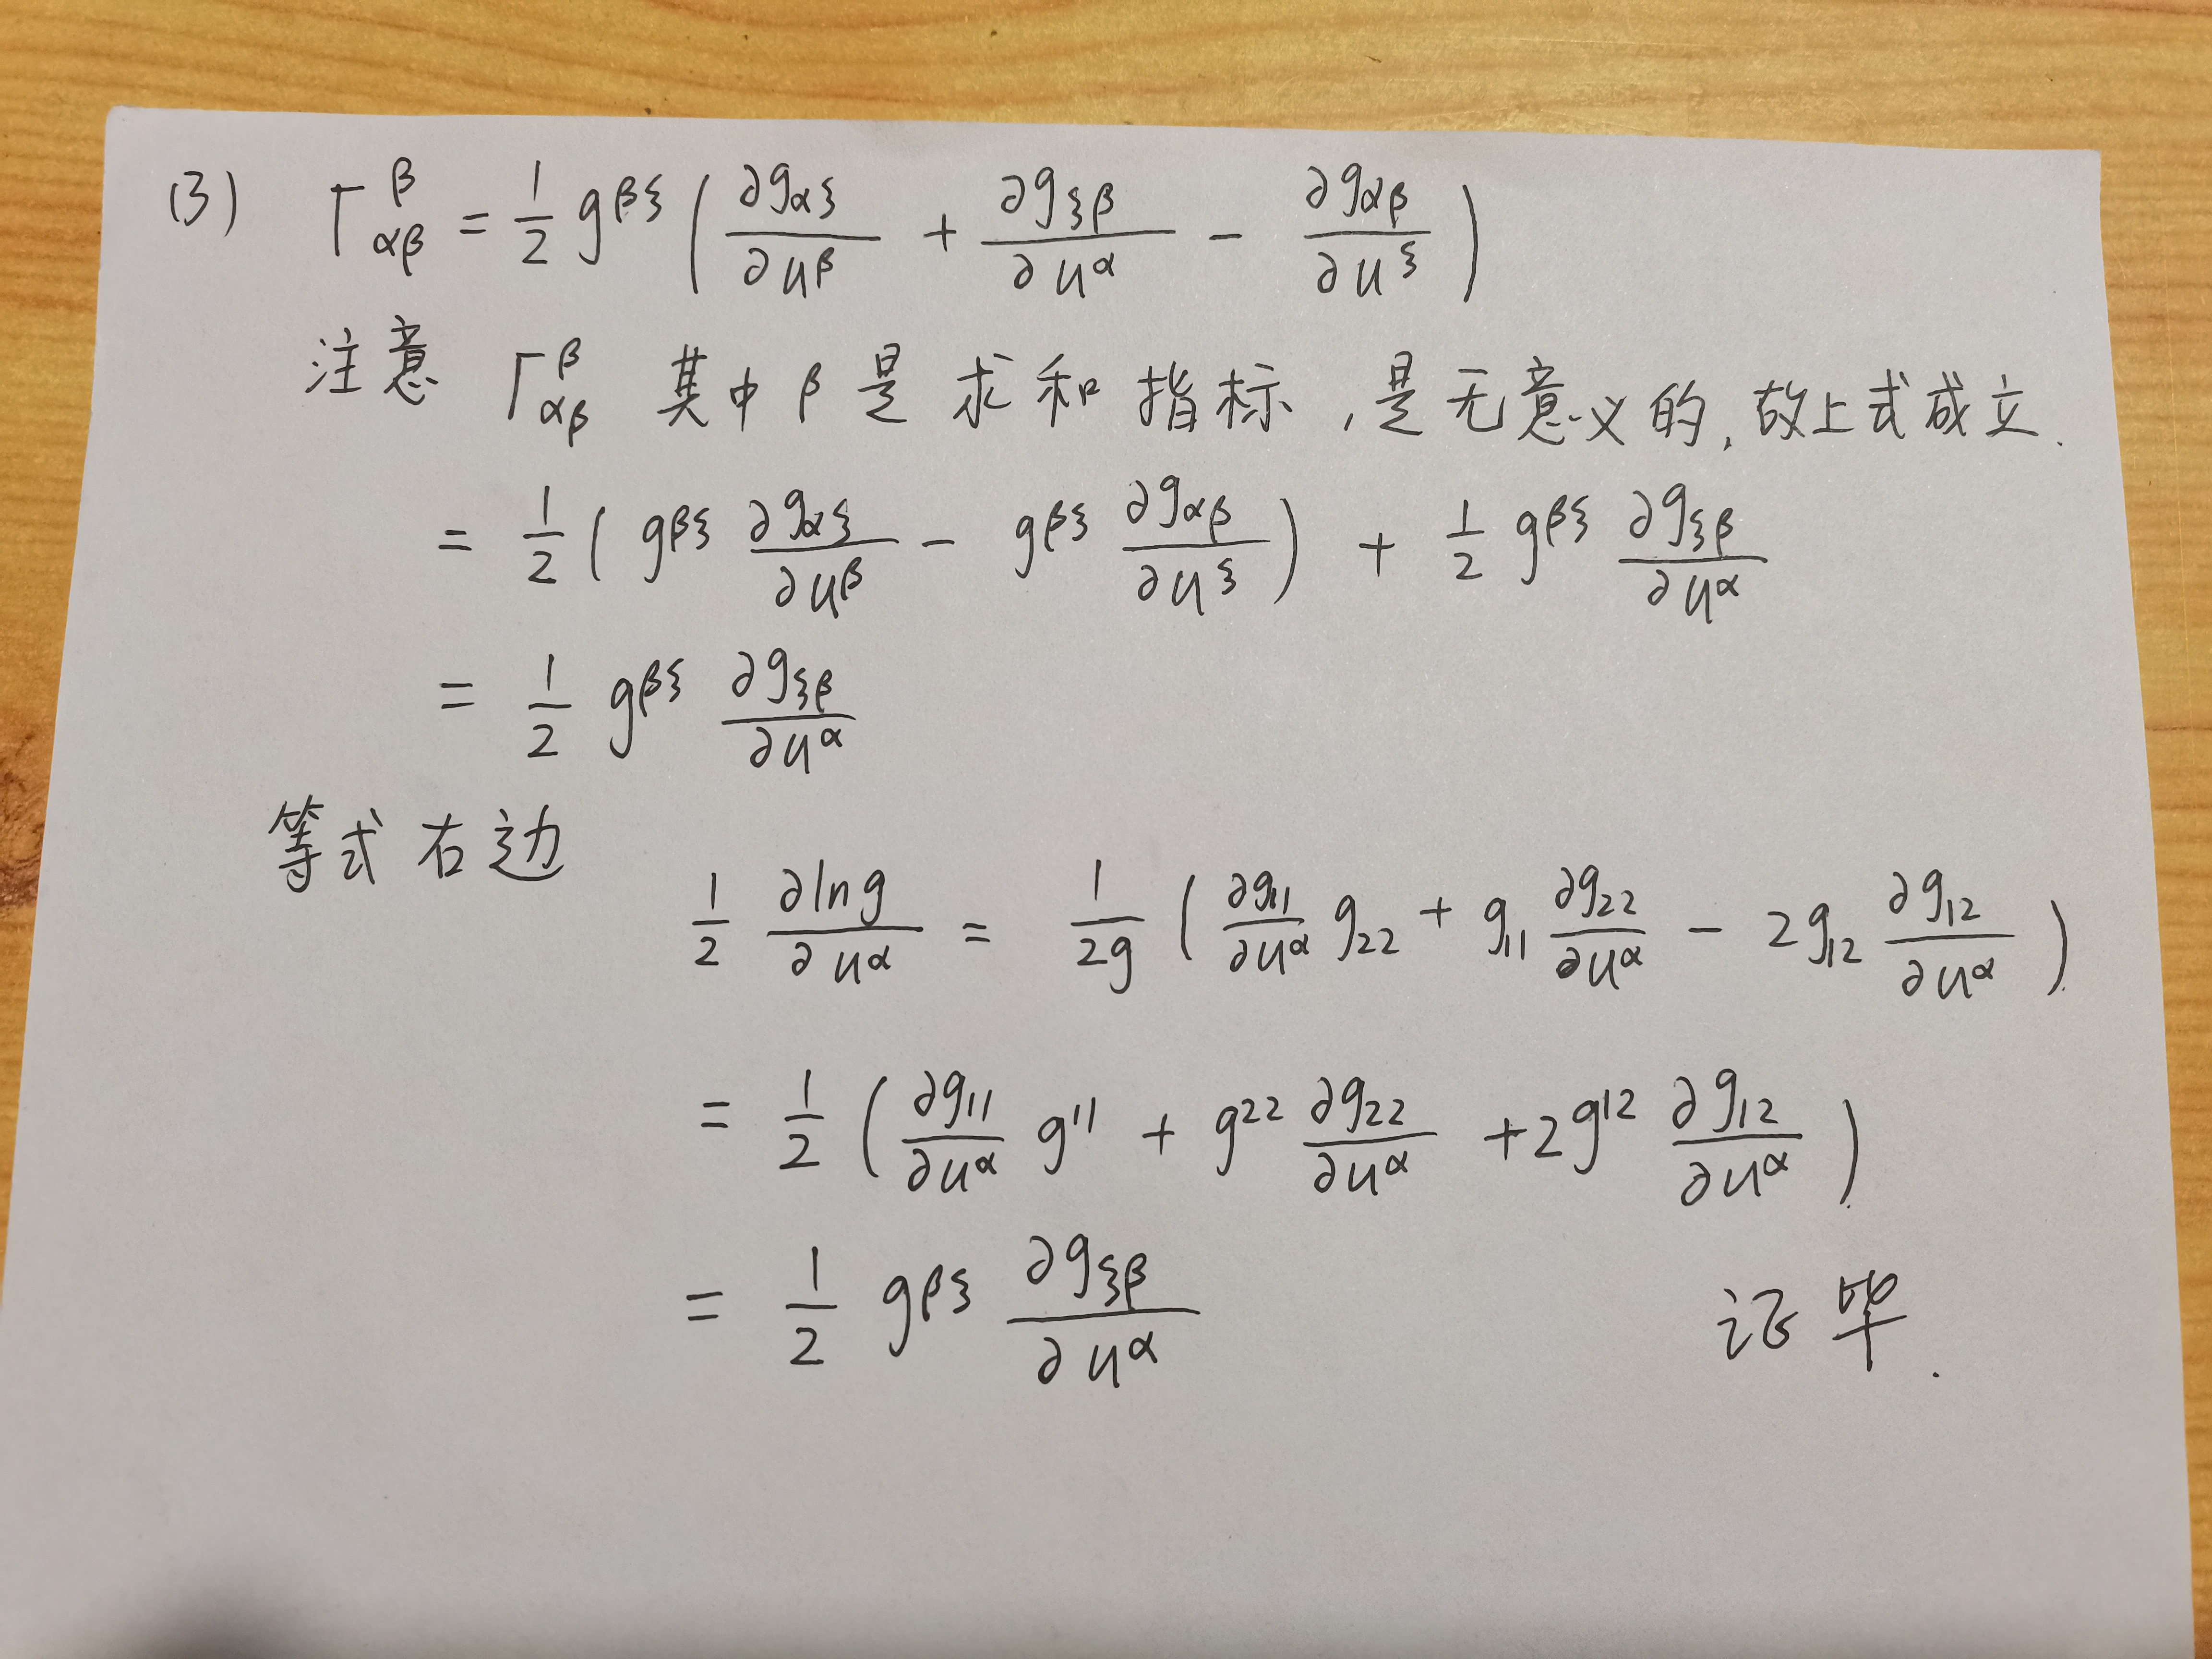 (3) Γ^β_{αβ} = 1/2 g^{βξ} ( ∂g_{αξ}/∂u^β + ∂g_{ξβ}/∂u^α - ∂g_{αβ}/∂u^ξ )
注意 Γ^β_{αβ} 其中 β 是 求和 指标 , 是无意义的, 故上式成立.
= 1/2 ( g^{βξ} ∂g_{αξ}/∂u^β - g^{βξ} ∂g_{αβ}/∂u^ξ ) + 1/2 g^{βξ} ∂g_{ξβ}/∂u^α
= 1/2 g^{βξ} ∂g_{ξβ}/∂u^α
等式右边
1/2 ∂ln g/∂u^α = 1/2g ( ∂g_{11}/∂u^α g_{22} + g_{11} ∂g_{22}/∂u^α - 2g_{12} ∂g_{12}/∂u^α ).
= 1/2 ( ∂g_{11}/∂u^α g^{11} + g^{22} ∂g_{22}/∂u^α + 2g^{12} ∂g_{12}/∂u^α ).
= 1/2 g^{βξ} ∂g_{ξβ}/∂u^α 证毕.